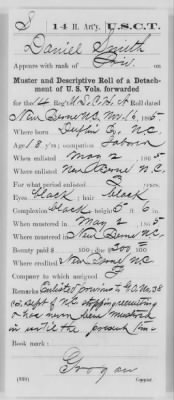 S | 14 H. Art'y. | U.S.C.T.
Daniel Smith
Appears with rank of Priv. on
Muster and Descriptive Roll of a Detach-
ment of U. S. Vols. forwarded
for the 14 Reg't U.S.C.H.A. Roll dated
New Berne N.C. Mch 16, 1865
Where born Duplin Co. N.C.
Age 18 y'rs; occupation Laborer
When enlisted May 2, 1865
Where enlisted New Berne N.C.
For what period enlisted 3 years.
Eyes black; hair black
Complexion black; height 5 ft. 6 in.
When mustered in May 2, 1865
Where mustered in New Berne N.C.
Bounty paid $ 100; due $ 300 100
Where credited New Berne N.C.
Company to which assigned
Remarks: Enlisted previous to G.O. No. 38
Dept of N.C. stopping recruiting
& has never been mustered
in until the present time
Book mark:
Grogan
(339) Copyist.